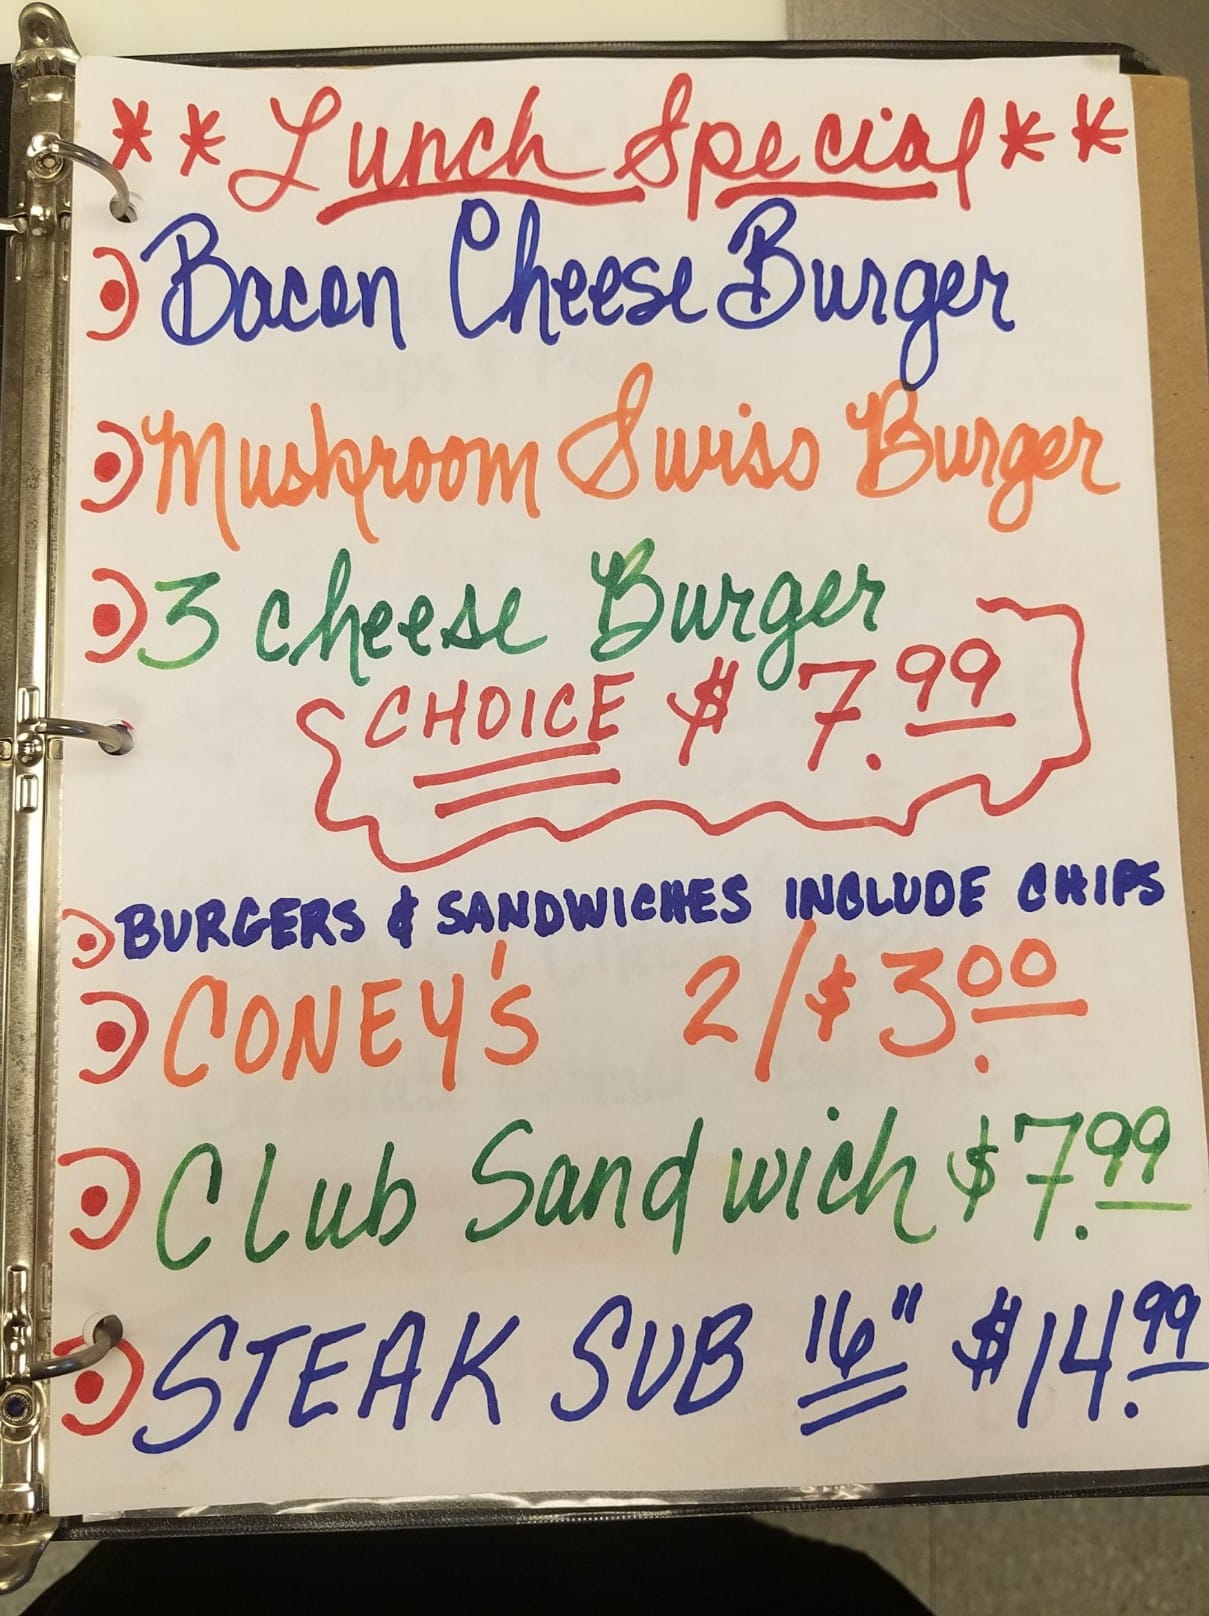 ** Lunch Special **
Bacon Cheese Burger
Mushroom Swiss Burger
3 cheese Burger
CHOICE $7.99
BURGERS & SANDWICHES INCLUDE CHIPS
CONEY'S 2/$3.00
Club Sandwich $7.99
STEAK SUB 16" $14.99